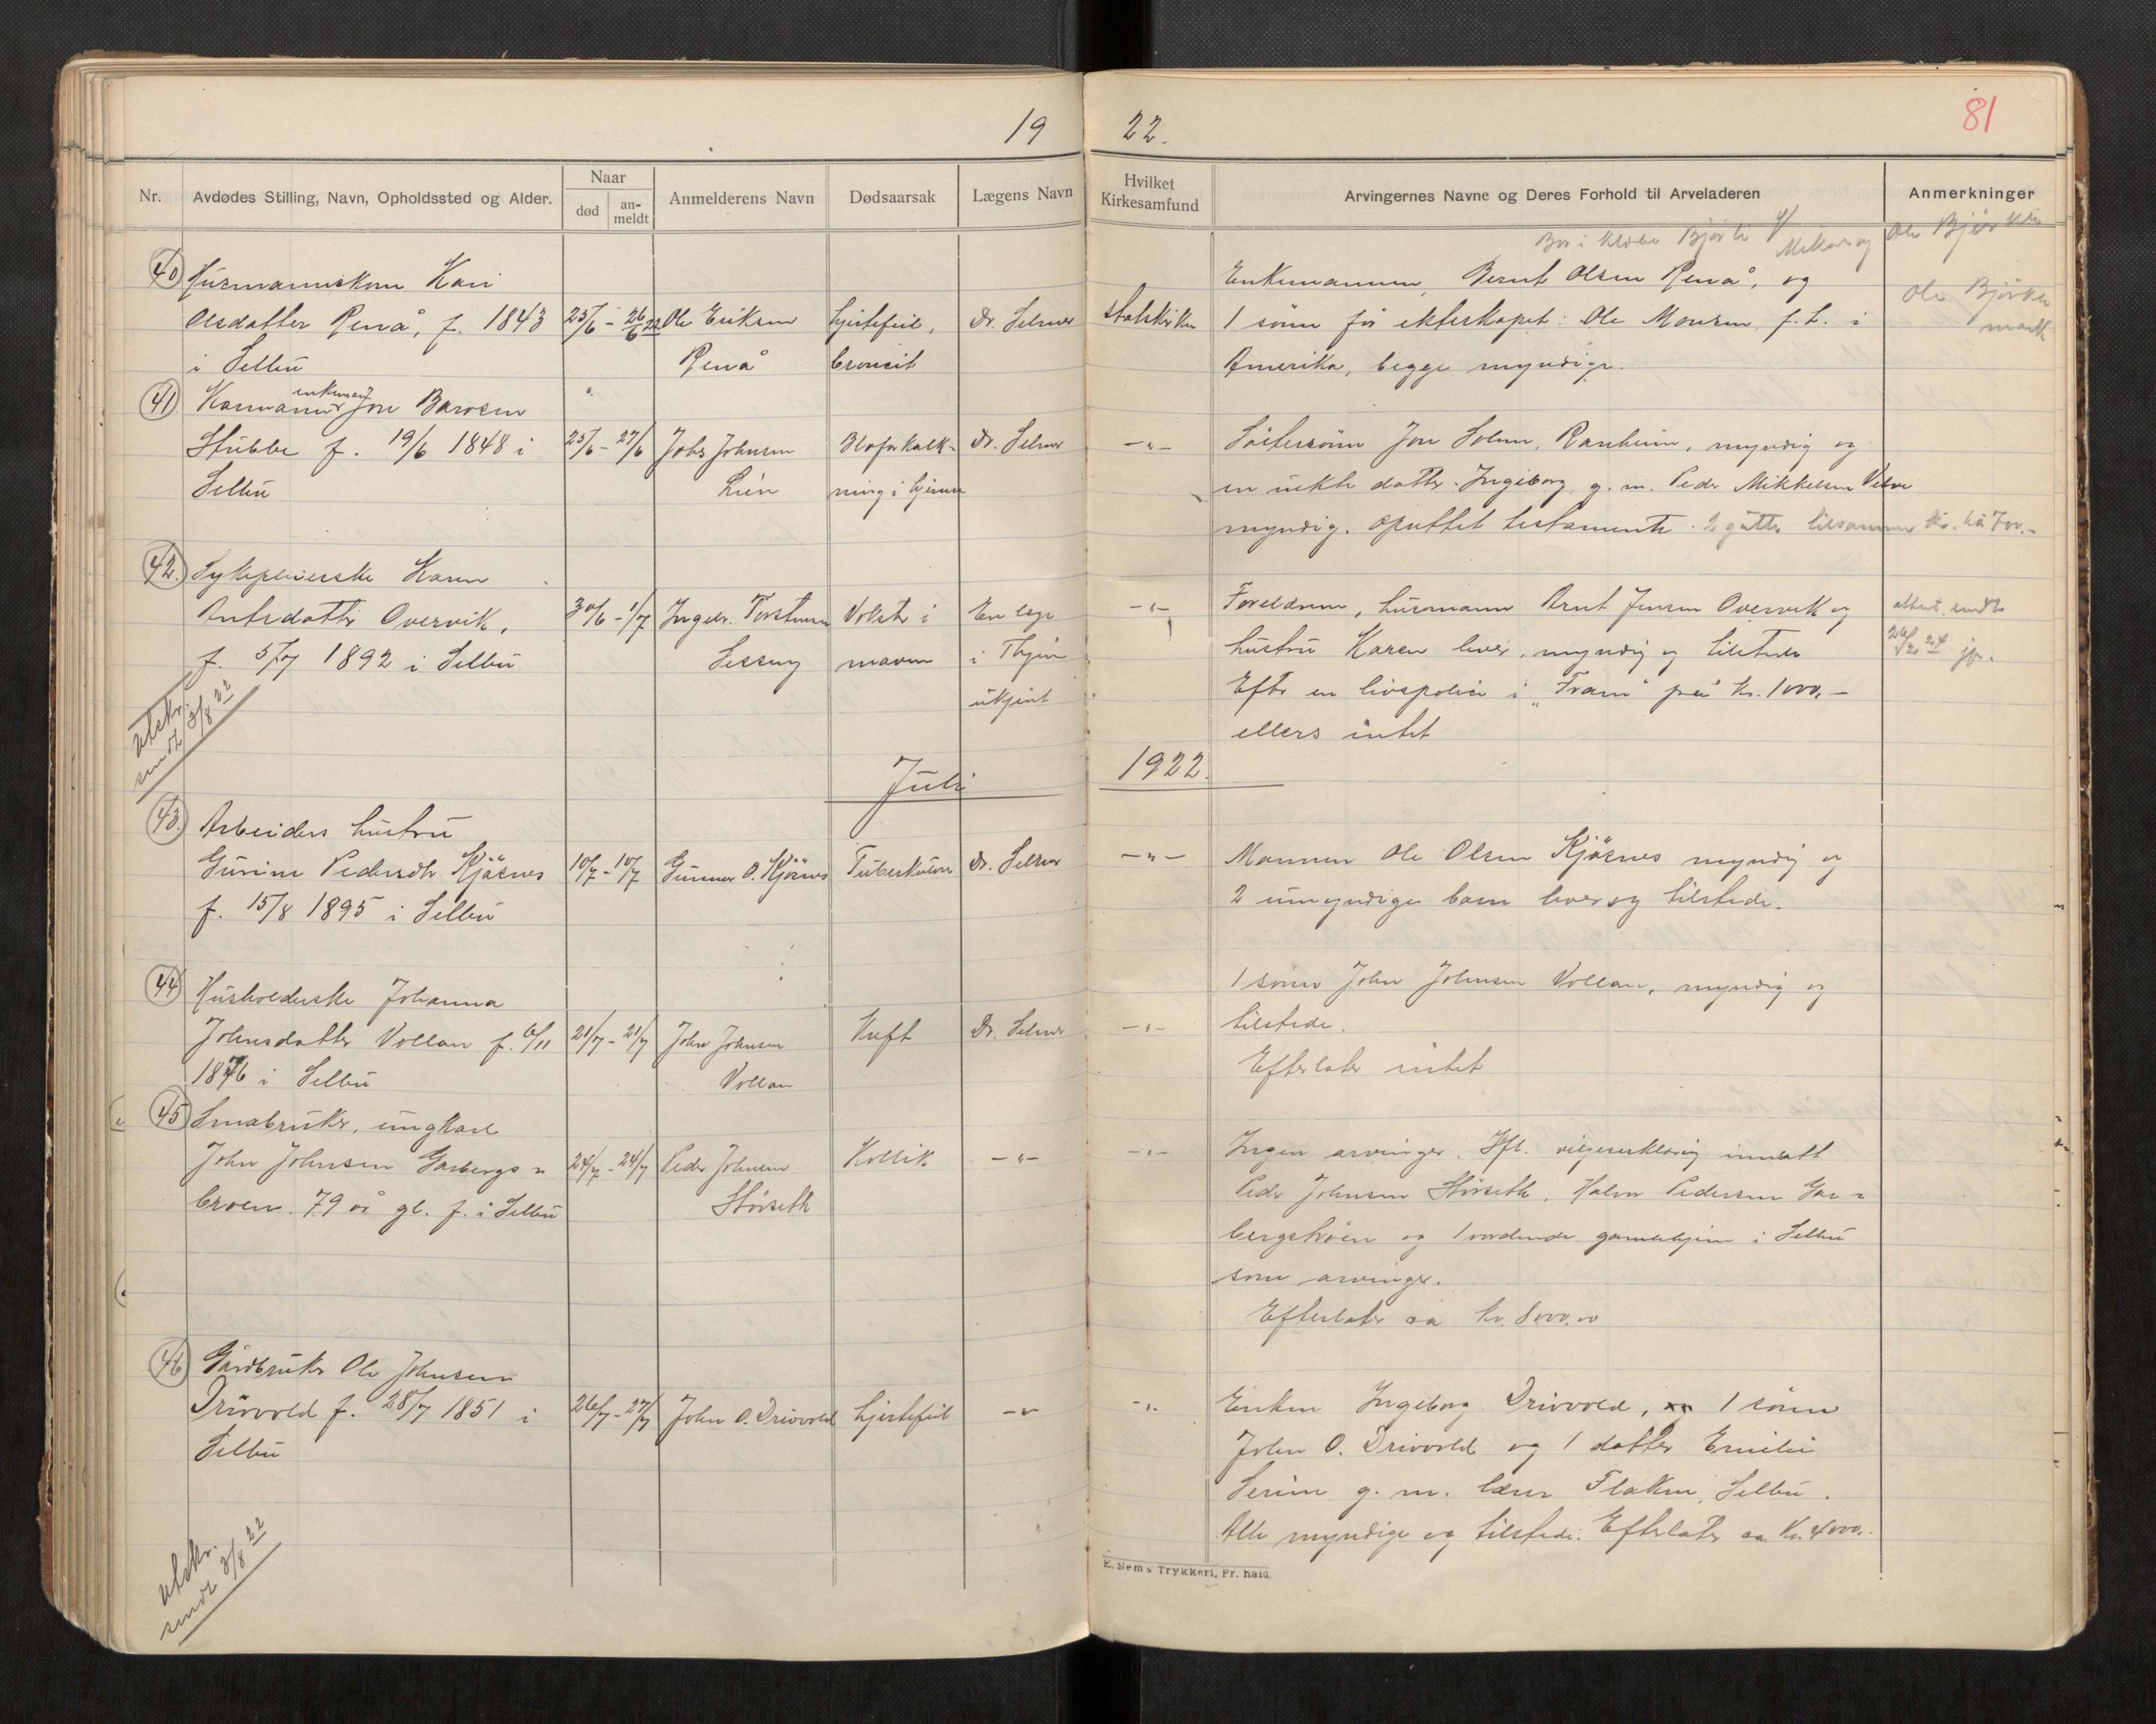 19 22.
81
Nr.
Avdødes Stilling, Navn, Opholdssted og Alder.
Naar
død
an-
meldt
Anmelderens Navn
Dødsaarsak
Lægens Navn
Hvilket
Kirkesamfund
Arvingernes Navne og Deres Forhold til Arveladeren
Anmerkninger
Bor i Klæbu
40 Husmannskone Kari
Olsdatter Renå, f. 1843
i Selbu
25/6 - 26/6 22
Ole Eriksen
Renå
hjertefeil,
bronsit
Dr. Selmer
Statskirken
Enkemannen, Bernt Olsen Renå, og
1 sönn för ekteskapet: Ole Monsen, f.t. i
Amerika, begge myndige.
41 Kaarmann enkemann Jon Baroen
Stubbe f. 19/6 1848 i
Selbu
25/6 - 27/6
Johs Johnsen
Lien
Bloforkalk-
ning i hjernen
Dr. Selmer
-"-
Söstersönn Jon Solem, Ranheim, myndig og
en uekte datter Ingeborg, g. m. Peder Mikkelsen
myndig. Oprettet testamente.
42. Sykepleierske Karen
Arntsdatter Overvik,
f. 5/7 1892 i Selbu
30/6 - 1/7
Ingebr. Torstensen
Sesseng
Vekst i
maven
En lege
i Thjem
ukjent
-"-
Foreldrene, husmann Arnt Jensen Overvik og
hustru Karen lever, myndig og tilstede
Efter en livspolice i "Fram" på kr. 1000,-
ellers intet
attest sendt
26/2 24
utskr.
sendt 3/8 22
Juli 1922.
43. Arbeiders hustru
Gurine Pedersdtr. Kjösnes
f. 15/8 1895 i Selbu
10/7 - 10/7
Gunnar O. Kjösnes
Tuberkulose
Dr. Selmer
-"-
Mannen Ole Olsen Kjösnes myndig og
2 umyndige barn lever og tilstede.
44 Husholderske Johanna
Johnsdatter Vollan f. 6/11
1876 i Selbu
21/7 - 21/7
John Johnsen
Vollan
Kreft
Dr. Selmer
-"-
1 sönn John Johnsen Vollan, myndig og
tilstede.
Efterlater intet
45 Småbruker, ungkarl
John Johnsen Garbergs-
broen. 79 år gl. f. i Selbu
24/7 - 24/7
Peder Johnsen
Störseth
Kollik
-"-
-"-
Ingen arvinger. Ifl. viljeserklæring innsatt
Peder Johnsen Störseth, Halvor Pedersen Gar-
bergskröen og 1 vordende gamlehjem i Selbu
som arvinger.
Efterlater ca kr. 8000,00
46 Gårdbruker Ole Johnsen
Drivvold f. 28/7 1851 i
Selbu
26/7 - 27/7
John O. Drivvold
hjertefeil
-"-
-"-
Enken Ingeborg Drivvold, 1 sönn
John O. Drivvold og 1 datter Emilie
Serine g. m. lærer Flaken, Selbu.
Alle myndige og tilstede. Efterlater ca. kr. 4000,-
utskr.
sendt 3/8 22
E. Sem's Trykkeri, Fr.hald.